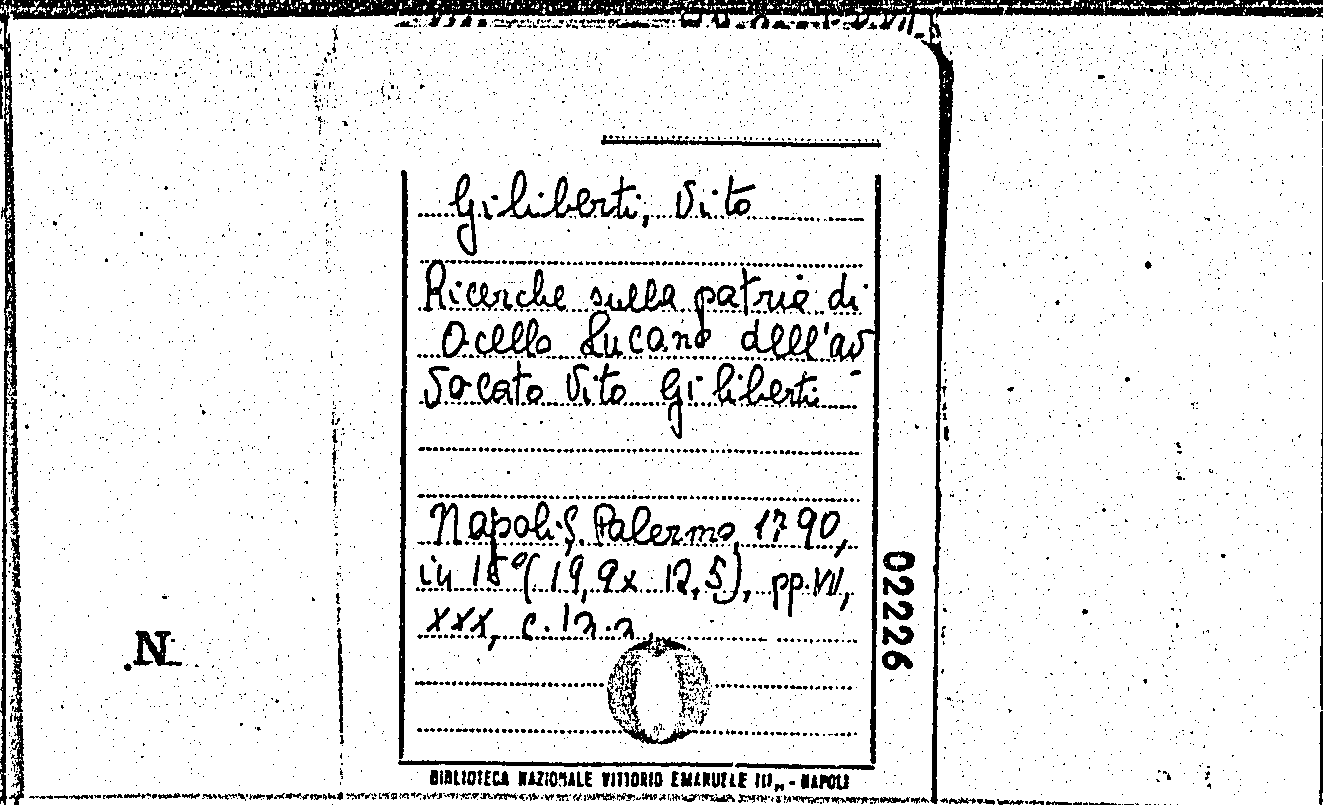 Giliberti, Vito
Ricerche sulla patria di
Ocello Lucano dell'av-
vocato Vito Giliberti
Napoli, S. Palermo, 1790,
in 15° (19,9x 12,5), pp. VII,
XXX, c. 12.n
02226
.N
BIBLIOTECA NAZIONALE VITTORIO EMANUELE III„ - NAPOLI